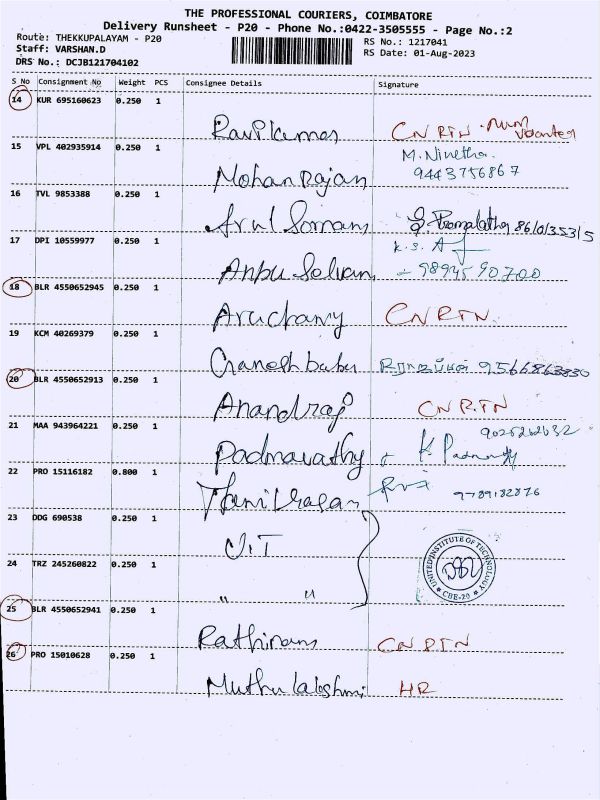 THE PROFESSIONAL COURIERS, COIMBATORE
Delivery Runsheet - P20 - Phone No.:0422-3505555 - Page No.:2
Route: THEKKUPALAYAM - P20
RS No.: 1217041
Staff: VARSHAN.D
RS Date: 01-Aug-2023
DRS No.: DCJB121704102
S No Consignment No Weight PCS Consignee Details Signature
14 KUR 695160623 0.250 1
Ravikumar CN RTN
15 VPL 402935914 0.250 1
M. Nivetha.
Mohan Rajan 9443756867
16 TVL 9853388 0.250 1
Arul
17 DPI 10559977 0.250 1
K.S.
Anbu Selvan 9894590700
18 BLR 4550652945 0.250 1
Aruchamy CN RTN
19 KCM 40269379 0.250 1
Ganesh babu 9566863830
20 BLR 4550652913 0.250 1
Anandraj CN RTN
21 MAA 943964221 0.250 1
Padmavathy K
22 PRO 15116182 0.800 1
9789182876
23 DDG 690538 0.250 1
U.T
24 TRZ 245260822 0.250 1
UNITED INSTITUTE OF TECHNOLOGY
CBE-20
" "
25 BLR 4550652941 0.250 1
Rathinam CN RTN
26 PRO 15010628 0.250 1
Muthulakshmi HR